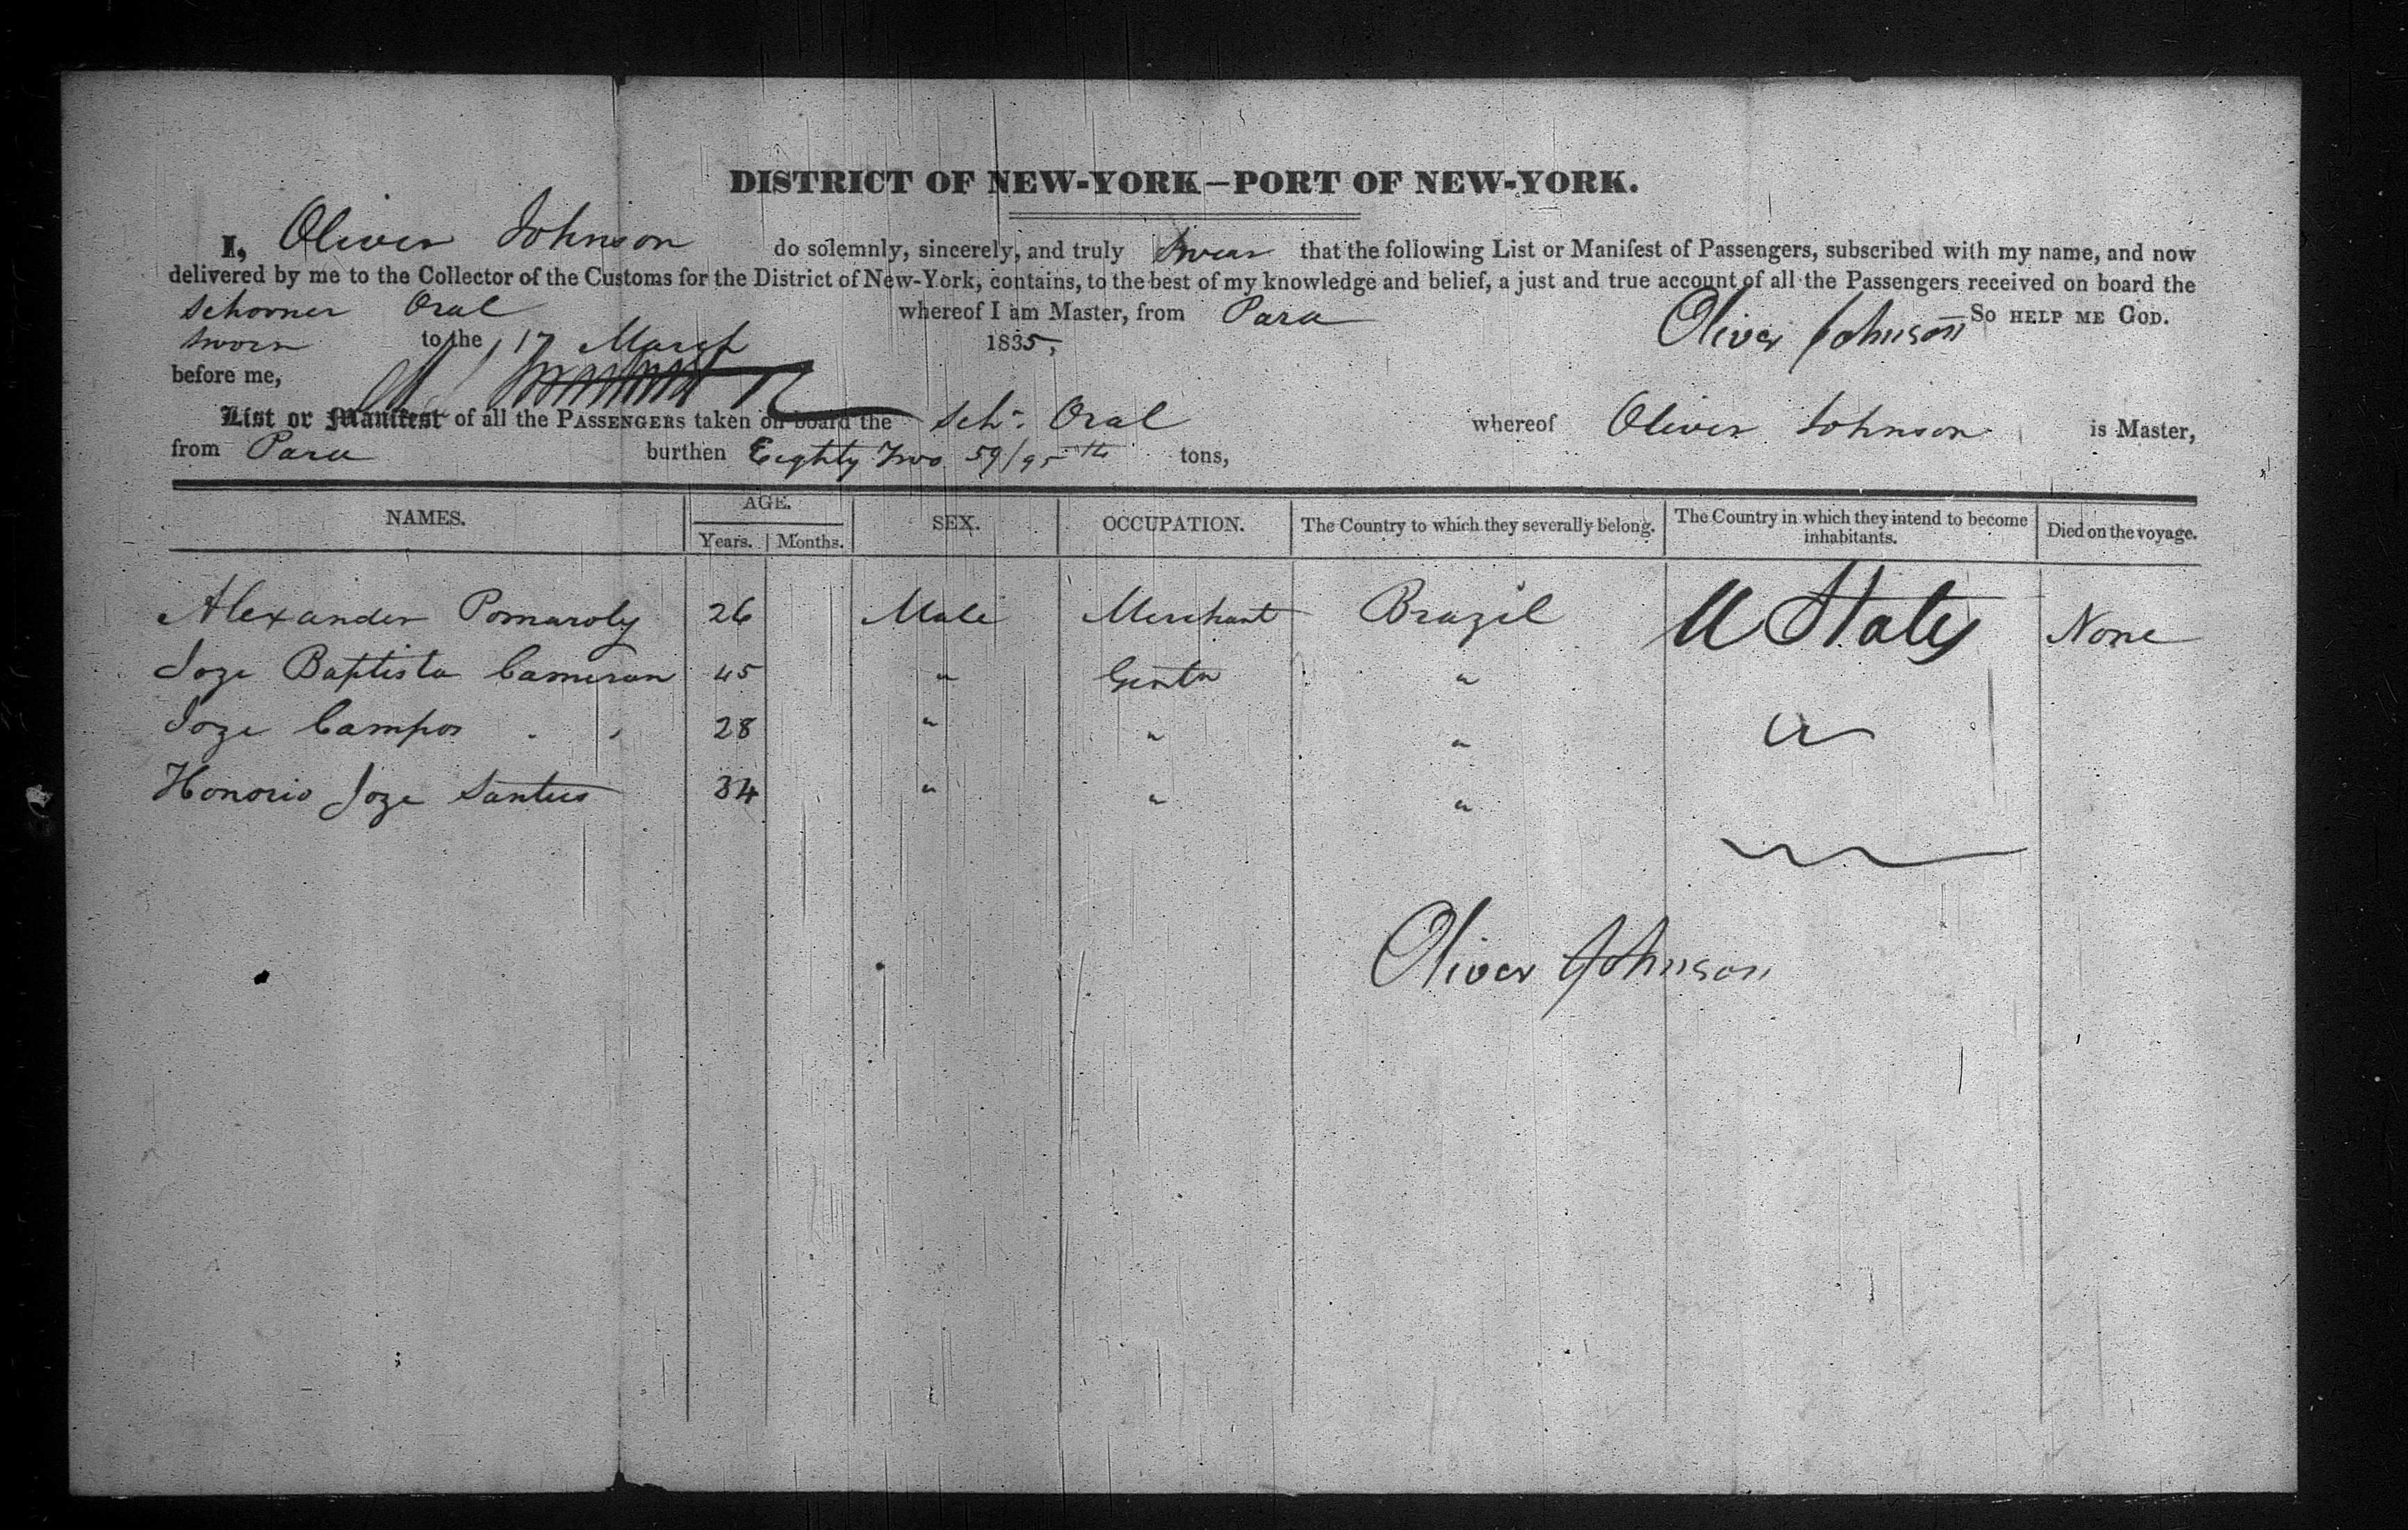 DISTRICT OF NEW-YORK—PORT OF NEW-YORK.
I, Oliver Johnson do solemnly, sincerely, and truly swear that the following List or Manifest of Passengers, subscribed with my name, and now
delivered by me to the Collector of the Customs for the District of New-York, contains, to the best of my knowledge and belief, a just and true account of all the Passengers received on board the
Schooner Oral whereof I am Master, from Para So HELP ME GOD.
sworn to the 17 March 1835, Oliver Johnson
before me,
List or Manifest of all the PASSENGERS taken on board the Sch. Oral whereof Oliver Johnson is Master,
from Para burthen Eighty Two 59/95th tons,
NAMES. AGE. Years. Months. SEX. OCCUPATION. The Country to which they severally belong. The Country in which they intend to become inhabitants. Died on the voyage.
Alexander Pomaroly 26 Male Merchant Brazil U States None
Joze Baptista Cameran 45 " Gentn "
Joze Campos 28 " " " "
Honorio Joze Santus 34 " " "
Oliver Johnson